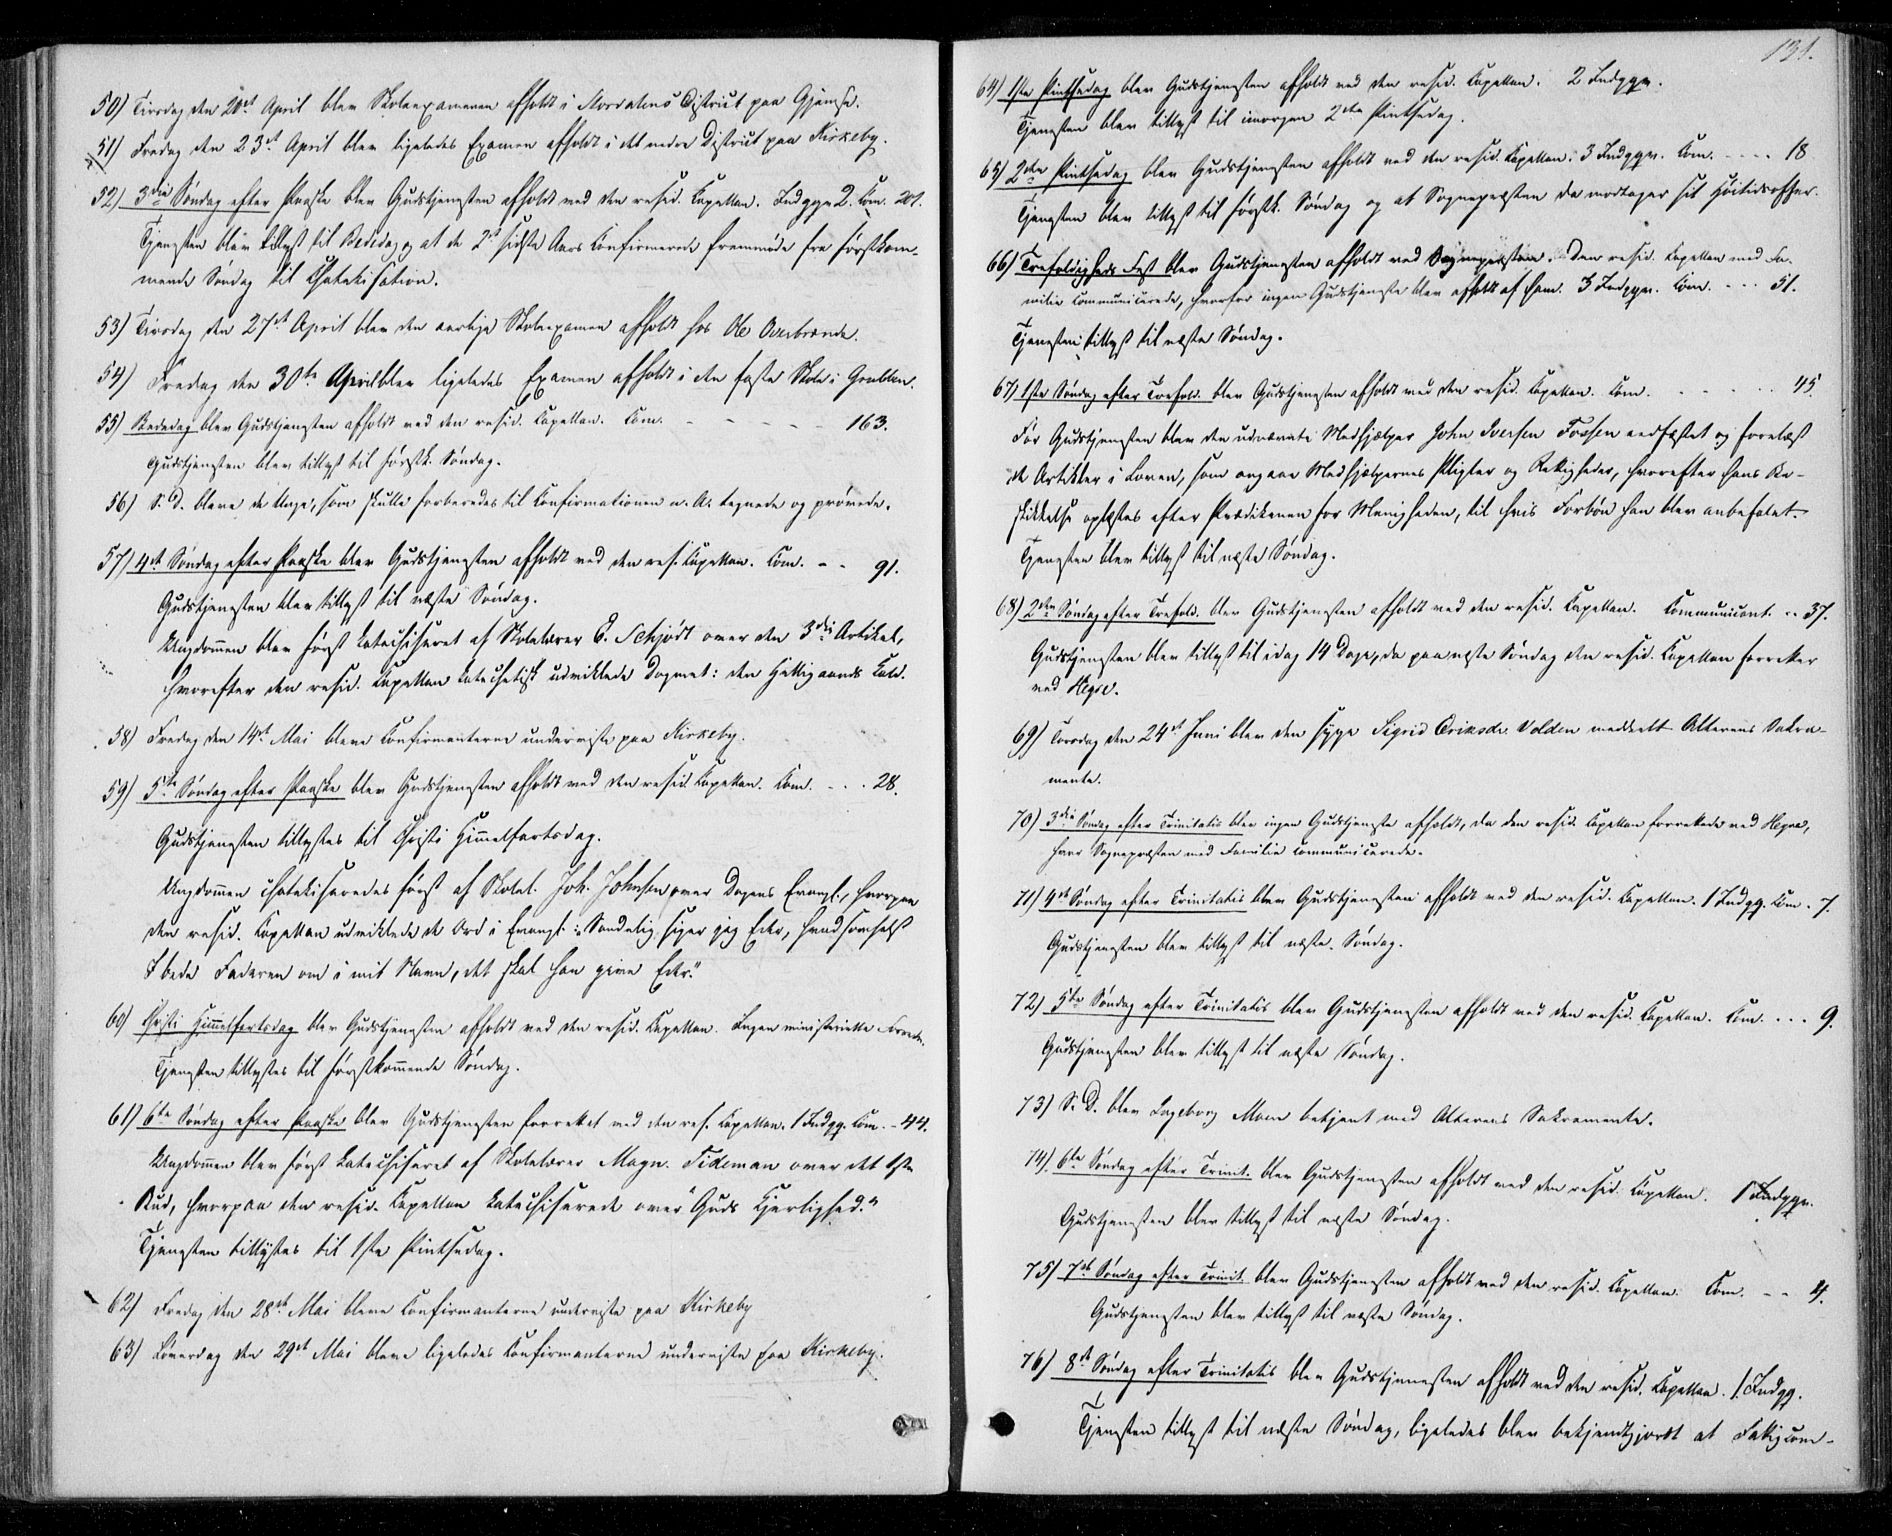 50) Tirsdag den 20de April blev Skoleexamenen afholdt i Mordalens District paa Gjemse.
51) Fredag den 23de April blev ligeledes Examen afholdt i det nedre District paa Kirkeby.
52) 3die Søndag efter Paaske blev Gudstjenesten afholdt ved den resid. Capellan. Indgqn 2. Com. 201.
Tjenesten blev tillyst til Bededag og at de 2de sidste Aars Confirmerede fremmøde fra førstkom-
mende Søndag til Chatekisation.
53) Tirsdag den 27de April blev den aarlige Skoleexamen afholdt hos Ole Overbrænde.
54) Fredag den 30te April blev ligeledes Examen afholdt i den faste Skole i Grubben.
55) Bededag blev Gudstjenesten afholdt ved den resid. Capellan. Com. - - - - - 163.
Gudstjenesten blev tillyst til førstk. Søndag.
56) S. D. bleve de Unge, som skulle forberedes til Confirmationen n. A. tegnede og prøvede.
57) 4de Søndag efter Paaske blev Gudstjenesten afholdt ved den res. Capellan. Com. - - 91.
Gudstjenesten blev tillyst til næste Søndag.
Ungdommen blev først katechiseret af Skolelærer C. Schjødt over den 3die Artikel,
hvorefter den resid. Capellan katechetisk udviklede Dogmet: den Hellig aands Kald.
58) Fredag den 14de Mai bleve Confirmanterne underviste paa Kirkeby.
59) 5te Søndag efter Paaske blev Gudstjenesten afholdt ved den resid. Capellan. Com. - . . 28.
Gudstjenesten tillystes til Christi Himmelfartsdag.
Ungdommen chatekiseredes først af Skolel. Joh. Johnsen over Dagens Evangl., hvorpaa
den resid. Capellan udviklede de Ord i Evangl.: "Sandelig siger jeg Eder, hvadsomhelst
I bede Faderen om i mit Navn, det skal han give Eder."
60) Christi Himmelfartsdag blev Gudstjenesten afholdt ved den resid. Capellan. Ingen ministerielle Forretn.
Tjenesten tillystes til førstkommende Søndag.
61) 6te Søndag efter Paaske blev Gudstjenesten forrettet ved den res. Capellan. 1 Indgq. Com. - 44.
Ungdommen blev først katechiseret af Skolelærer Magn. Tideman over det 1ste
Bud, hvorpaa den resid. Capellan katechiserede over "Guds Kjærlighed."
Tjenesten tillystes til 1ste Pintsedag.
62) Fredag den 28de Mai bleve Confirmanterne underviste paa Kirkeby
63) Løverdag den 29de Mai bleve ligeledes Confirmanterne underviste paa Kirkeby.
131.
64) 1ste Pintsedag blev Gudstjenesten afholdt ved den resid. Capellan. 2 Indgqn.
Tjenesten blev tillyst til imorgen 2den Pintsedag.
65) 2den Pintsedag blev Gudstjenesten afholdt ved den resid. Capellan. 3 Indgqn. Com. - - - - 18
Tjenesten blev tillyst til førstk. Søndag og at Sognepræsten da modtager sit Høitidsoffer.
66) Trefoldigheds Fest blev Gudstjenesten afholdt ved Sognepræsten. Den resid. Capellan med Fa-
milie communicerede, hvorfor ingen Gudstjeneste blev afholdt af ham. 3 Indgqn. Com. - - - 51.
Tjenesten tillyst til næste Søndag.
67) 1ste Søndag efter Trefold. blev Gudstjenesten afholdt ved den resid. Capellan. Com. - - - - - 45
Før Gudstjenesten blev den udnævnte Medhjælper John Iversen Fossen edfæstet og forelæst
de Artikler i Loven, som angaae Medhjælpernes Pligter og Rettigheder, hvorefter hans Be-
skikkelse oplæstes efter Prædikenen for Menigheden, til hvis Forbøn han blev anbefalet.
Tjenesten blev tillyst til næste Søndag.
68) 2den Søndag efter Trefold. blev Gudstjenesten afholdt ved den resid. Capellan. Communicant. - - 37.
Gudstjenesten blev tillyst til idag 14 Dage, da paa næste Søndag den resid. Capellan forretter
ved Hegre.
69) Torsdag den 24de Juni blev den syge Sigrid Eriksdr. Volden meddeelt Alterens Sakra-
mente.
70) 3die Søndag efter Trinitatis blev ingen Gudstjeneste afholdt, da den resid. Capellan forrettede ved Hegre,
hvor Sognepræsten med Familie communicerede.
71) 4de Søndag efter Trinitatis blev Gudstjenesten afholdt ved den resid. Capellan. 1 Indgq. Com. 7.
Gudstjenesten blev tillyst til næste Søndag.
72) 5te Søndag efter Trinitatis blev Gudstjenesten afholdt ved den resid. Capellan. Com. . . . 9.
Gudstjenesten blev tillyst til næste Søndag.
73) S. D. blev Ingeborg Moen betjent med Alterens Sakramente.
74) 6te Søndag efter Trinit. blev Gudstjenesten afholdt ved den resid. Capellan. 1 Indgqn.
Gudstjenesten blev tillyst til næste Søndag.
75) 7de Søndag efter Trinit. blev Gudstjenesten afholdt ved den resid. Capellan. Com. - - 4.
Gudstjenesten blev tillyst til næste Søndag.
76) 8de Søndag efter Trinitatis blev Gudstjenesten afholdt ved den resid. Capellan. 1. Indgq.
Tjenesten tillyst til næste Søndag, ligeledes blev bekjendtgjordt at Fattigcom-